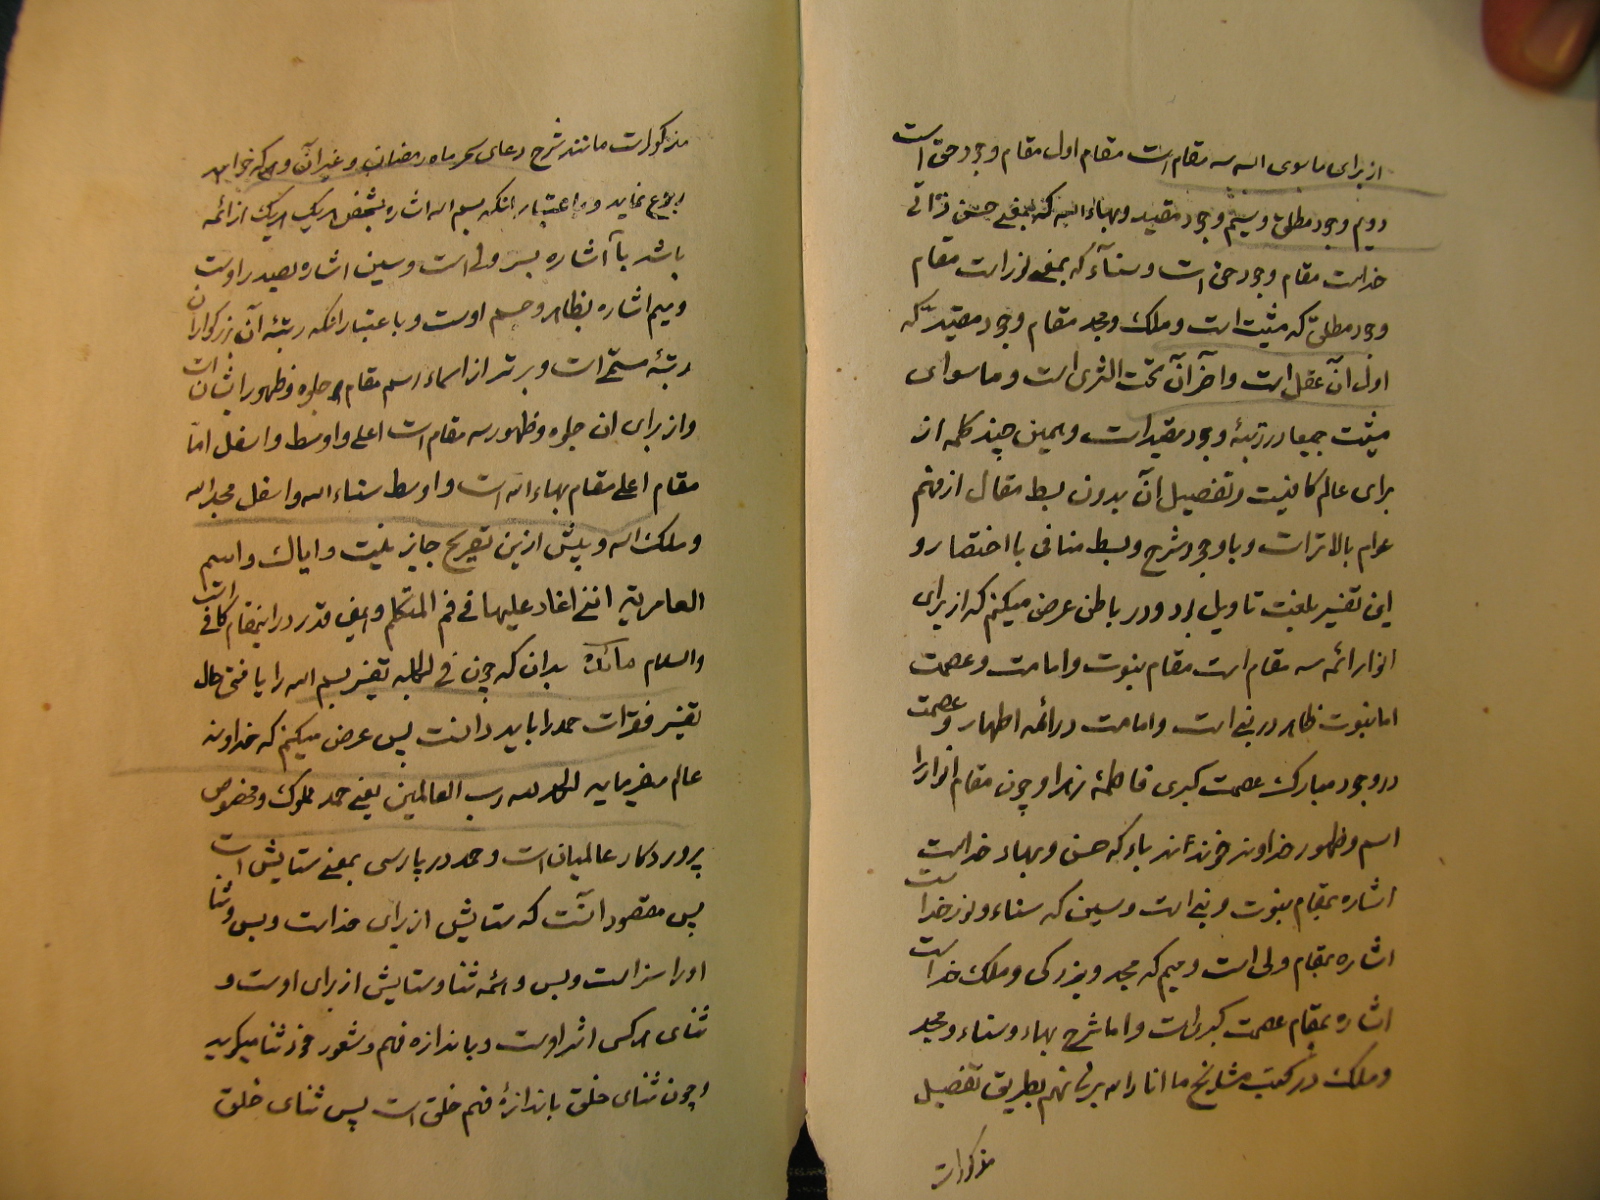 از برای ماسوی الله سه مقام است مقام اول مقام وجود حق است
دویم وجود مطلق و سیم وجود مقید و بهاء الله که بمعنی حسن ذاتی
خداست مقام وجود حق است و سناء که بمعنی نور است مقام
وجود مطلق که مشیت است و ملک و مجد مقام وجود مقید که
اول آن عقل است و آخر آن تحت الثری است و ماسوای
مشیت جمیعا در رتبهٔ وجود مقید است و همین چند کلمه از
برای عالم کافیست و تفصیل آن بدون بسط مقال از فهم
عوام بالاتر است و با وجود شرح و بسط منافی با اختصار و
این تفسیر بلغت تاویل و در باطن عرض میکنم که از برای
انوار ائمه سه مقام است مقام نبوت و امامت و عصمت
اما نبوت ظاهر در نبی است و امامت در ائمه اطهار و عصمت
در وجود مبارک عصمت کبری فاطمهٔ زهرا و چون مقام انوار را
اسم و ظهور خداوند خوانده‌اند باء که حسن و بهاء خداست
اشاره بمقام نبوت و نبی است و سین که سناء و نور خداست
اشاره بمقام ولی است و میم که مجد و بزرگی و ملک خداست
اشاره بمقام عصمت کبری است و اما شرح بهاء و سناء و مجد
و ملک در کتب مشایخ ما انار الله برهانهم بطریق تفصیل
مذکور است
مذکور است مانند شرح دعای سحر ماه رمضان و غیر آن و هر که خواهد
رجوع نماید و باعتبار اینکه بسم الله اشاره بشخص هر یک هر یک از ائمه
باشد باء اشاره بسر ولی است و سین اشاره بصدر اوست
و میم اشاره بظاهر و جسم اوست و باعتبار اینکه رتبهٔ آن بزرگواران
رتبهٔ مسمی است و برتر از اسماء اسم مقام جلوه و ظهور ایشان است
و از برای آن جلوه و ظهور سه مقام است اعلی و اوسط و اسفل اما
مقام اعلی مقام بهاء الله است و اوسط سناء الله و اسفل مجد الله
و ملک الله و بیش ازین تصریح جایز نیست و ایاک و اسم
العامریة اننی اغار علیها فی فم المتکلم و همین قدر در اینمقام کافی است
والسلام بدان که چون فی الجمله تفسیر بسم الله را یافتی حال
تفسیر فقرات حمد را باید دانست پس عرض میکنم که خداوند
عالم میفرماید الحمد لله رب العالمین یعنی حمد مملوک و مخصوص
پروردگار عالمیان است و حمد در پارسی بمعنی ستایش است
پس مقصود آنست که ستایش از برای خداست و بس و ثنا
او را سزاست و بس و همه ثنا و ستایش از برای اوست و
ثنای هر کس اثر اوست و باندازه فهم و شعور خود ثنا میگوید
و چون ثنای خلق باندازهٔ فهم خلق است پس ثنای خلق